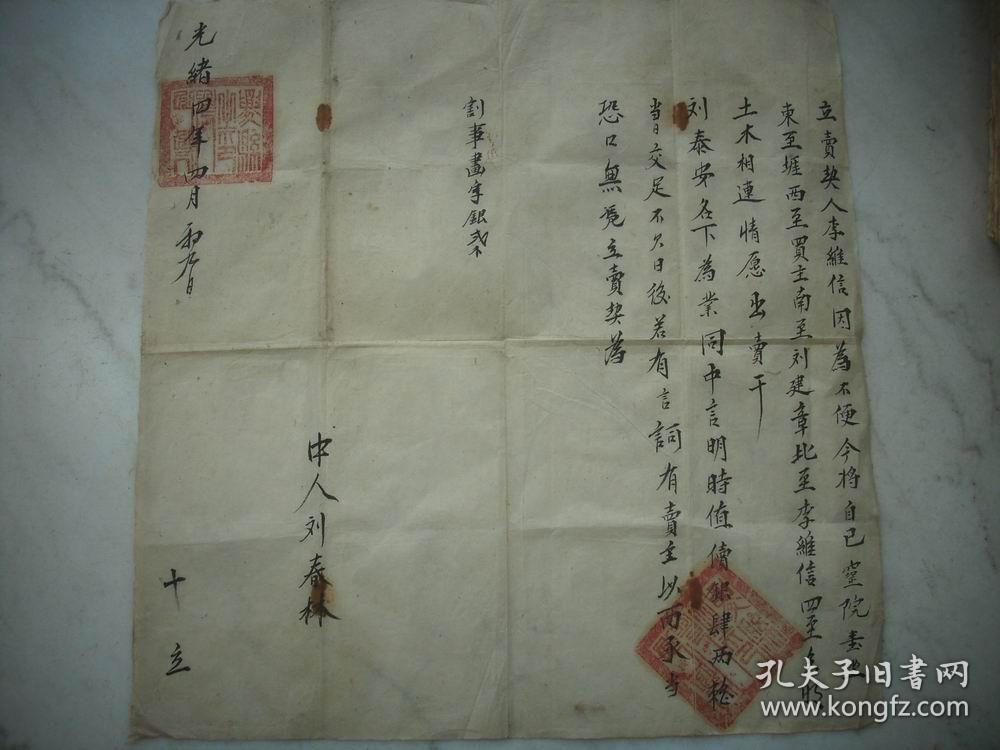 立賣契人李維信因為不便今將自己𡫏院壹
東至堐西至買主南至刘建章北至李維信四至
土木相連情愿出賣于
刘泰安名下為業同中言明時值價銀肆両整
當日交足不欠日後若有言詞有賣主以面承当
恐口無凴立賣契為
割事畫字銀
中人刘春林
光緒四年四月初九日
十立
孔夫子旧书网
www.kongfz.com